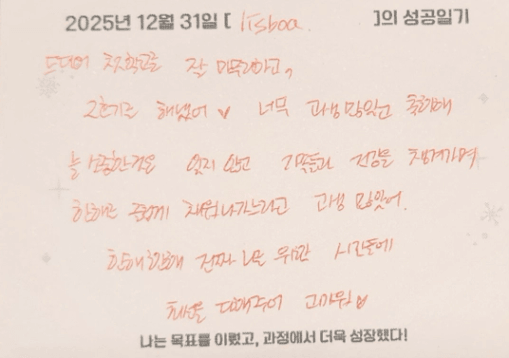 2025년 12월 31일 [ lisboa. ]의 성공일기
드디어 잘 마무리하고,
2호기도 해냈어 ♥ 너무 고생 많았고 축하해
늘 소중한것은 잊지 않고 가족들과 건강을 챙겨가며
한해를 즐겁게 채워나가느라고 고생 많았어.
한해한해 진짜 나를 위한 시간들에
최선을 다해주어 고마워 ♥
나는 목표를 이뤘고, 과정에서 더욱 성장했다!